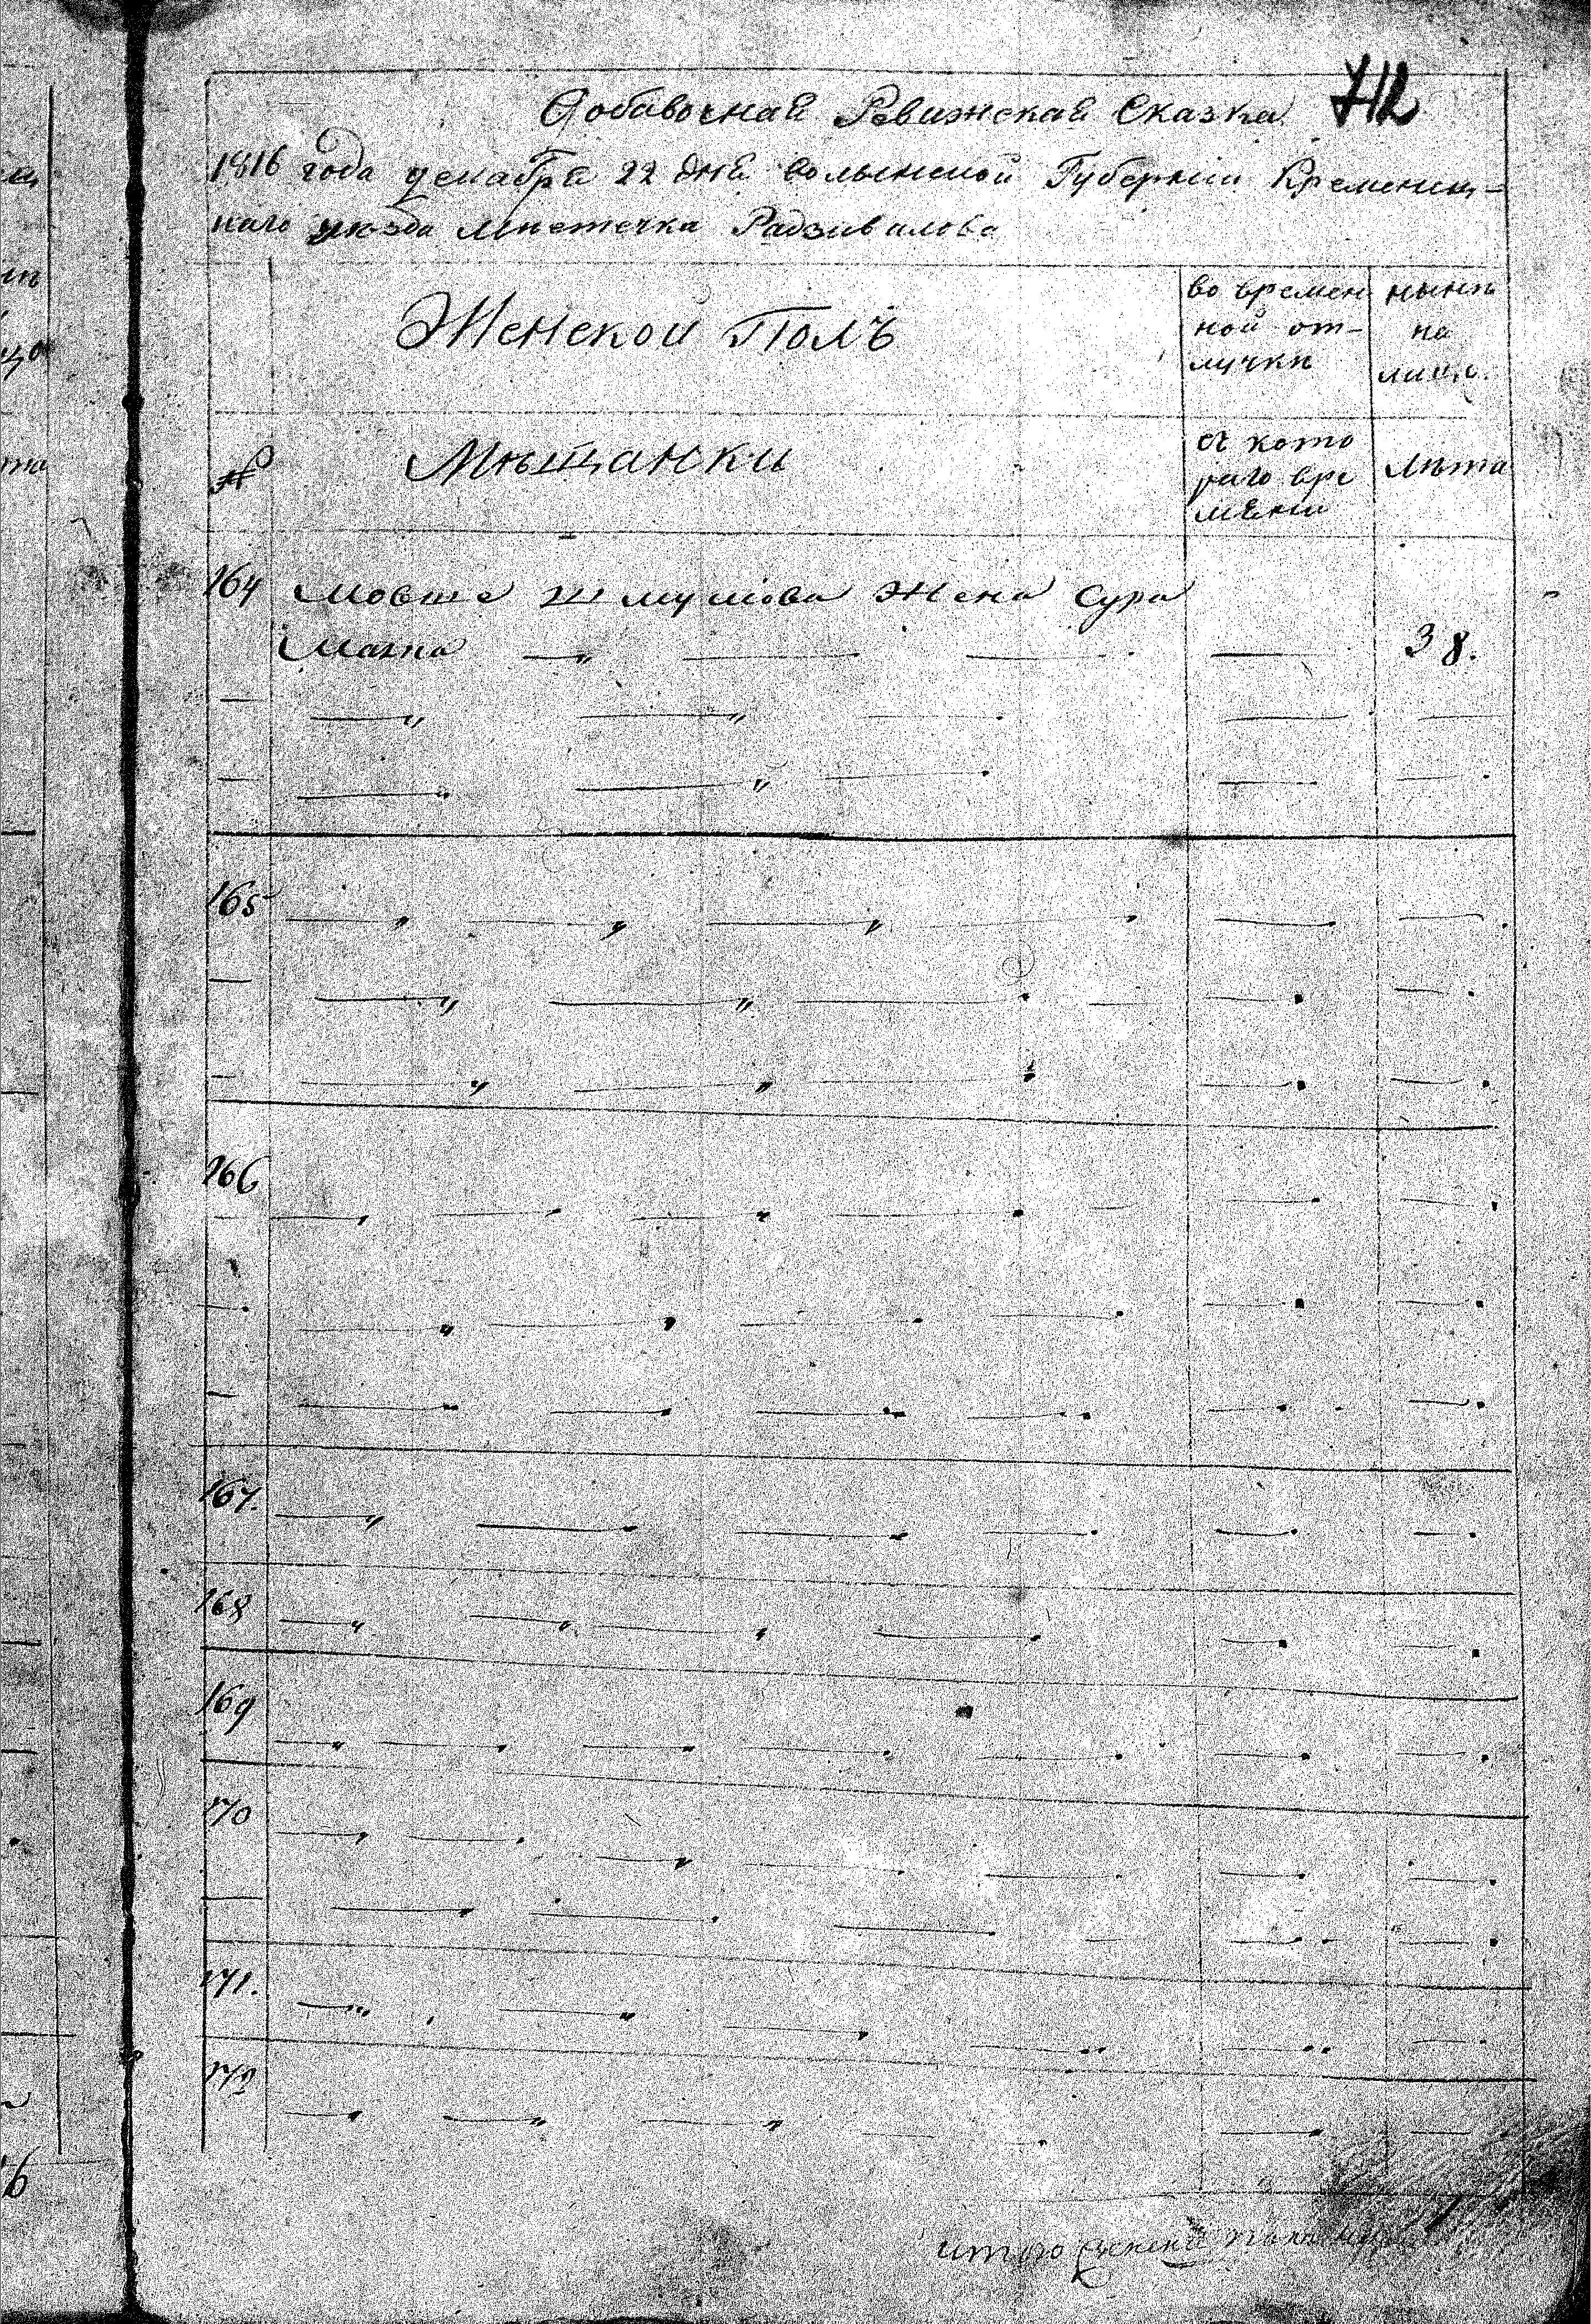 712
Добавочная Ревижская Сказка
1816 года декабря 22 дня волынской Губернии Кременец-
каго уезда местечка Радзивалова
Женской Полъ
во времен
ной от-
лучки
нынѣ
на
лицо.
№
Мѣщанки
съ кото
раго вре
мени
лѣта
164 Мовше Шмулiова Жена Сура
38.
165
166
167.
168
169
170
171.
172
итого